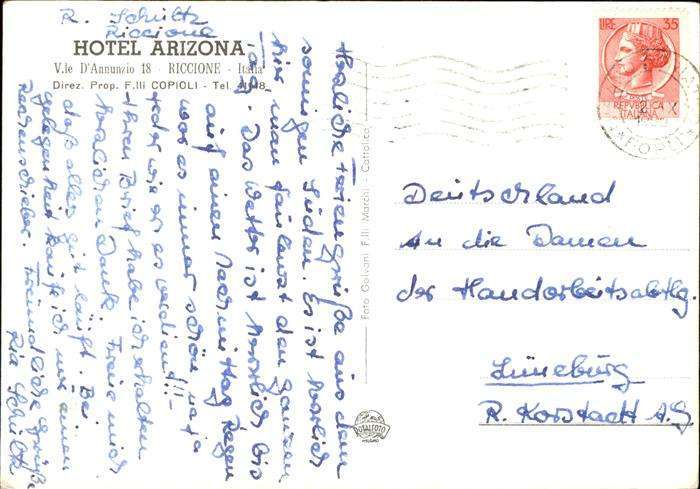 R. Schültz
Riccione
HOTEL ARIZONA
V.le D'Annunzio 18 - RICCIONE - Italia
Direz. Prop. F.lli COPIOLI - Tel. 41948
Herzliche Feriengrüße aus dem
sonnigen Süden. Es ist herrlich
hier man faulenzt den ganzen
Tag. Das Wetter ist herrlich bis
auf einen Nachmittag Regen
war es immer schön na ja
jeder wie er es verdient!! -
Ihren Brief habe ich erhalten
herzlichen Dank. Freue mich
daß alles gut läuft. Bei
gelegenheit kaufe ich mir einen
Rechenschieber. Freundliche Grüße
Ria Schültz
Foto Golvani F.lli Marchi - Cattolica
LIRE 35
REPVBBLICA
ITALIANA
Deutschland
An die Damen
der Handarbeitsabtlg.
Lüneburg
R. Karstadt A.G